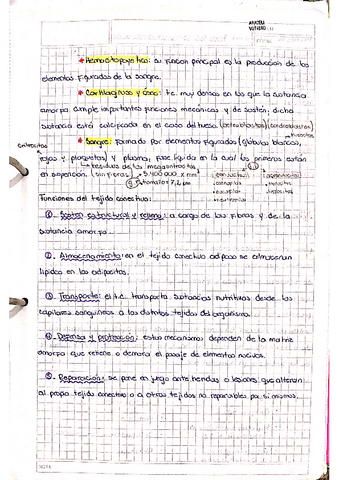 * Hematopoyetico: su funcion principal es la produccion de los
elementos figurados de la sangre.
* Cartilaginoso y óseo: t.c. muy densos en los que la sustancia
amorfa cumple importantes funciones mecánicas y de sostén, dicha
sustancia está calcificada en el caso del hueso. (osteoblastos) (condroblastos)
* Sangre: formada por elementos figurados (glóbulos blancos,
Eritrocitos
rojos y plaquetas) y plasma, fase liquida en la cual los primeros están
en suspensión. (sin fibras)
5.400.000 x mm³
tamaño = 7,2 µm
Funciones del tejido conectivo:
① Sostén estructural y relleno: a cargo de las fibras y de la
sustancia amorfa
② Almacenamiento: en el tejido conectivo adiposo se almacenan
lípidos en los adipocitos.
③ Transporte: el t.c. transporta sustancias nutritivas desde los
capilares sanguíneos a los distintos tejidos del organismo.
④ Defensa y protección: estos mecanismos dependen de la matriz
amorfa que retiene o demora el pasaje de elementos nocivos.
⑤ Reparación: se pone en juego ante heridas o lesiones que alteran
al propio tejido conectivo o a otros tejidos no reparables por sí mismos.